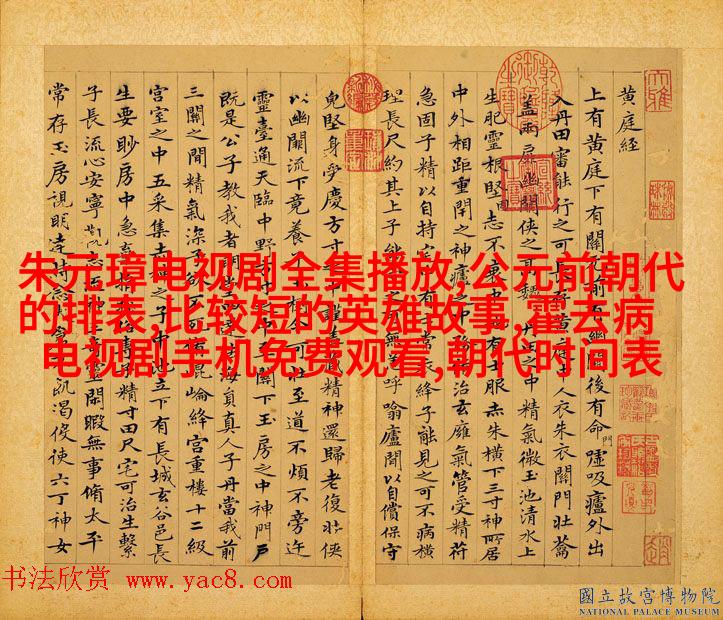 黄庭經
上有黃庭下有關元前有幽闕後有命門噓吸廬外出
入丹田審能行之可長存黃庭中人衣朱衣關門壯籥
蓋兩扉幽闕俠之高巍丹之中精氣微玉池清水上
生肥靈根堅固志不衰中池有士服赤朱橫下三寸神所居
中外相距重閉之神廬之中脩治玄廱氣管受精符
急固子精以自持宅有士常衣絳子能見之可不病橫
理長尺約其上子能守之可無恙呼噏廬間以自償保守
兔堅身受慶方寸之中謹蓋藏精神還歸老復壯俠
以幽闕流下竟養子玉樹令可杖至道不煩不旁迕
靈臺通天臨中野方寸之中至關下玉房之中神門戶
既是公子教我者明堂四達法海員真人子丹當我前
三關之間精氣深子欲不死脩崑崙絳宮重樓十二級
宮室之中五采集赤神之子中池立下有長城玄谷邑長
生要眇房中急棄捐淫欲專子精寸田尺宅可治生繫
子長流心安寧觀志流神三奇靈閒暇無事脩太平
常存玉房視明達時念大倉不飢渴役使六丁神女
朱元璋电视剧全集播放,公元前朝代
的排表,比较短的英雄故事,霍去病
电视剧手机免费观看,朝代时间表
书法欣赏 www.yac8.com
國立故宮博物院
NATIONAL PALACE MUSEUM